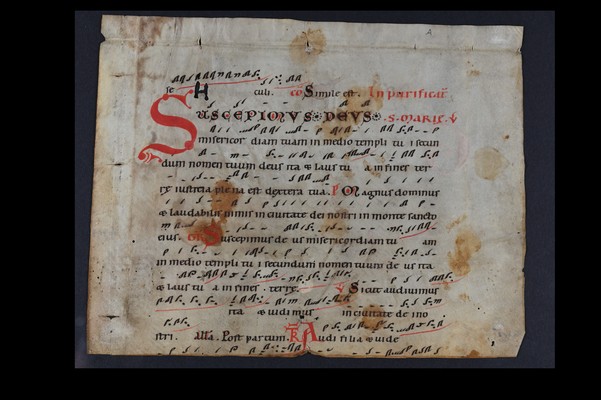 se culi. co Simile est. In purificat
SUSCEPIMUS DEUS S. MARIE V
misericor diam tuam in medio templi tu i secun
dum nomen tuum deus ita & laus tu a in fines ter
re iusticia plena est dextera tua. P Magnus dominus
& laudabilis nimis in ciuitate dei nostri in monte sancto
eius. Suscepimus de us misericordiam tu am
in medio templi tu i secundum nomen tuum de us ita
& laus tu a in fines terre. V Sicut audiuimus
ita & uidimus in ciuitate de i no
stri. alla. Post partum. R Audi filia & uide